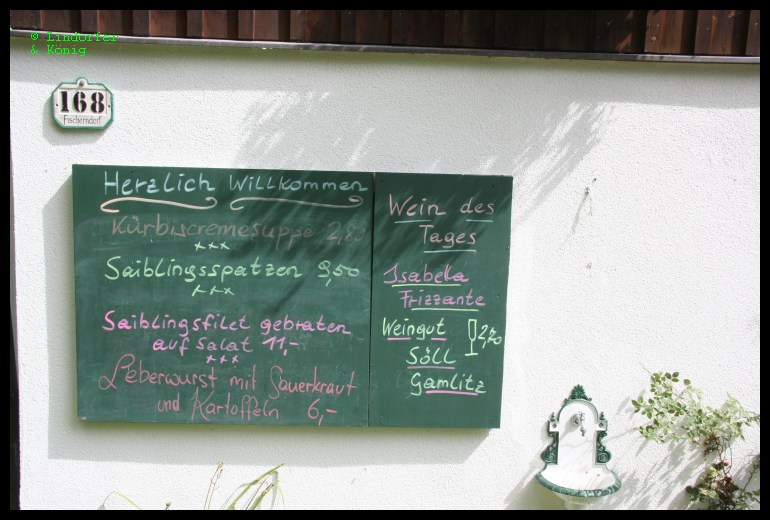 © Lindorfer
& König
168
Fischerndorf
Herzlich Willkommen
Kürbiscremesuppe 2,80
xxx
Saiblingsspatzen 9,50
xxx
Saiblingsfilet gebraten
auf Salat 11,-
xxx
Leberwurst mit Sauerkraut
und Kartoffeln 6,-
Wein des
Tages
Isabella
Frizzante
Weingut 2,70
Söll
Gamlitz